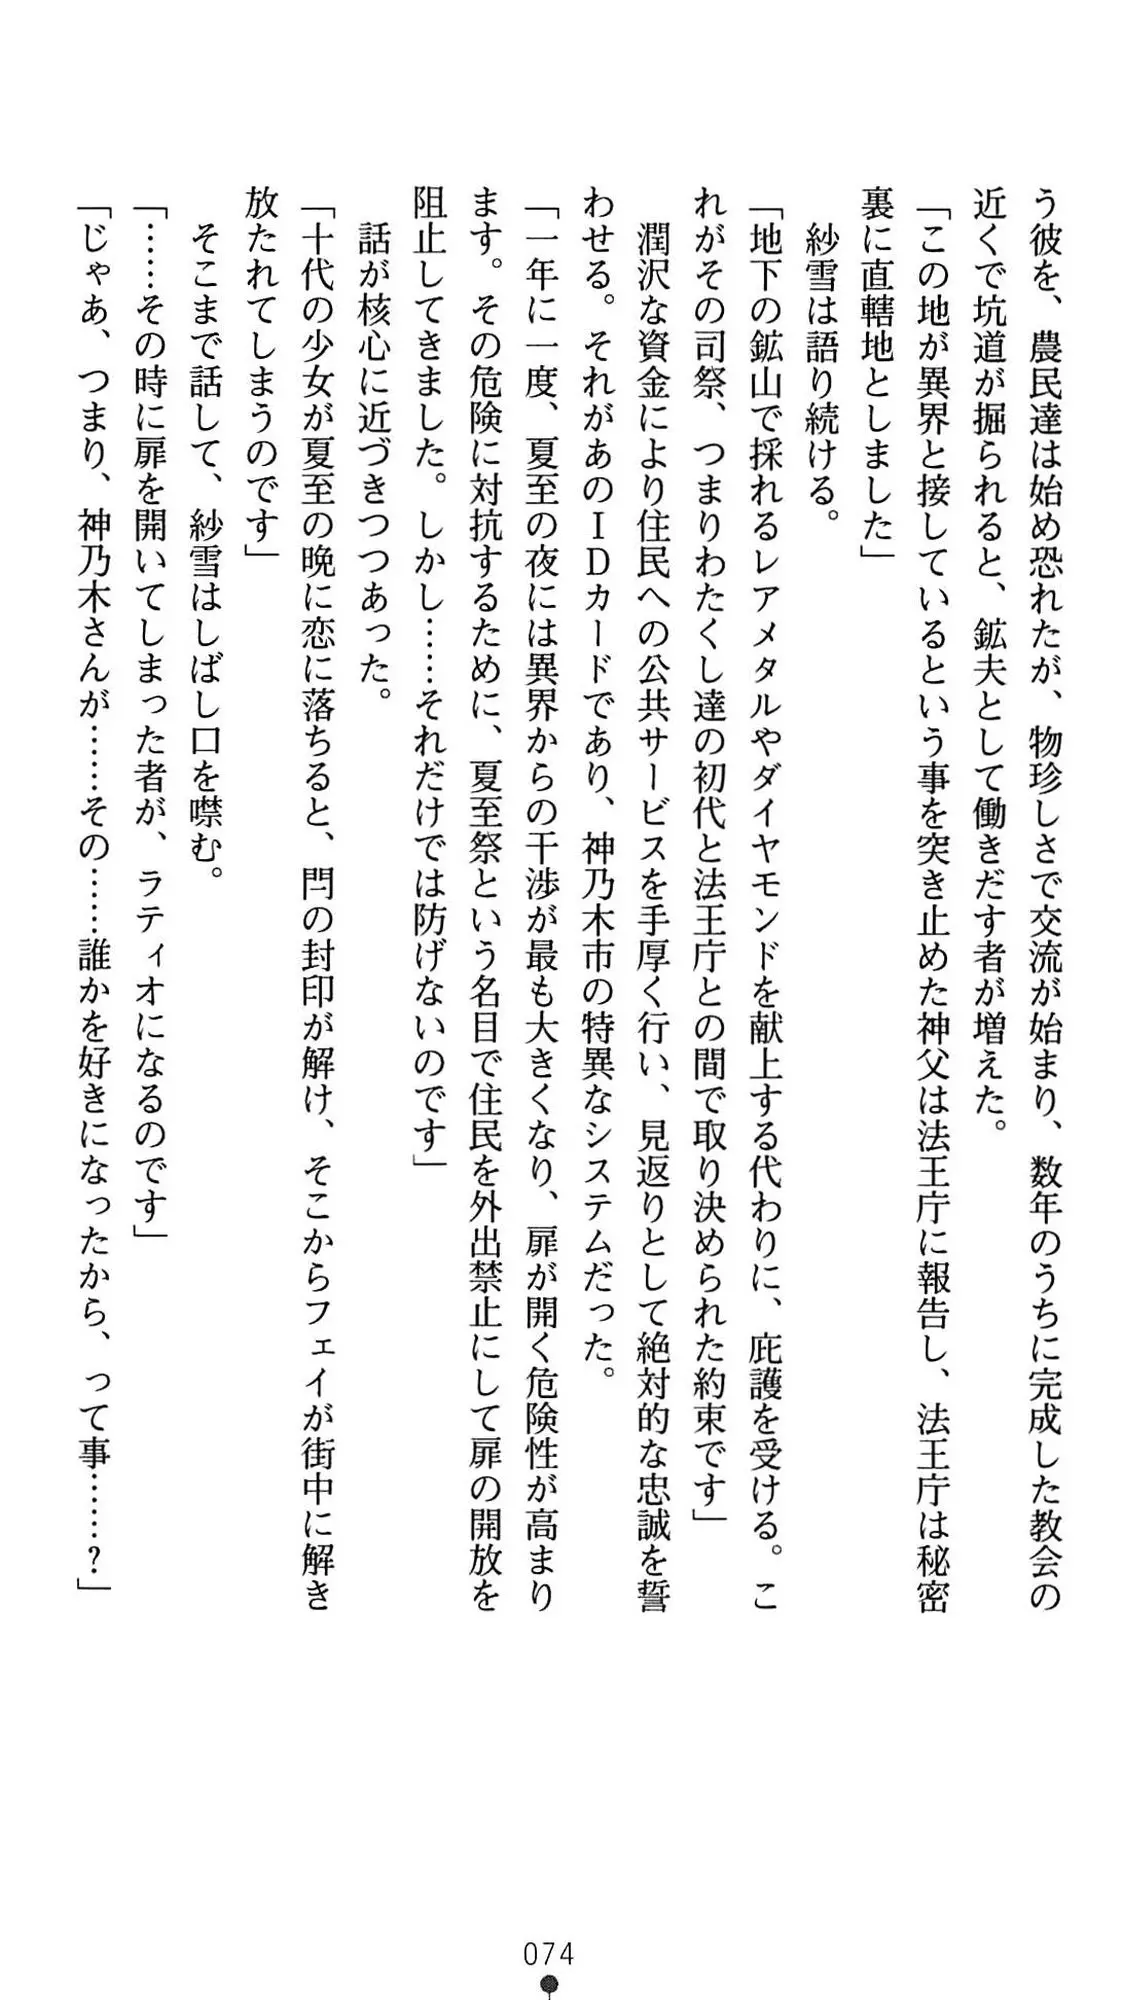 う彼を、農民達は始め恐れたが、物珍しさで交流が始まり、数年のうちに完成した教会の
近くで坑道が掘られると、鉱夫として働きだす者が増えた。
「この地が異界と接しているという事を突き止めた神父は法王庁に報告し、法王庁は秘密
裏に直轄地としました」
　紗雪は語り続ける。
「地下の鉱山で採れるレアメタルやダイヤモンドを献上する代わりに、庇護を受ける。こ
れがその司祭、つまりわたくし達の初代と法王庁との間で取り決められた約束です」
　潤沢な資金により住民への公共サービスを手厚く行い、見返りとして絶対的な忠誠を誓
わせる。それがあのＩＤカードであり、神乃木市の特異なシステムだった。
「一年に一度、夏至の夜には異界からの干渉が最も大きくなり、扉が開く危険性が高まり
ます。その危険に対抗するために、夏至祭という名目で住民を外出禁止にして扉の開放を
阻止してきました。しかし……それだけでは防げないのです」
　話が核心に近づきつつあった。
「十代の少女が夏至の晩に恋に落ちると、閂の封印が解け、そこからフェイが街中に解き
放たれてしまうのです」
　そこまで話して、紗雪はしばし口を噤む。
「……その時に扉を開いてしまった者が、ラティオになるのです」
「じゃあ、つまり、神乃木さんが……その……誰かを好きになったから、って事……？」
074